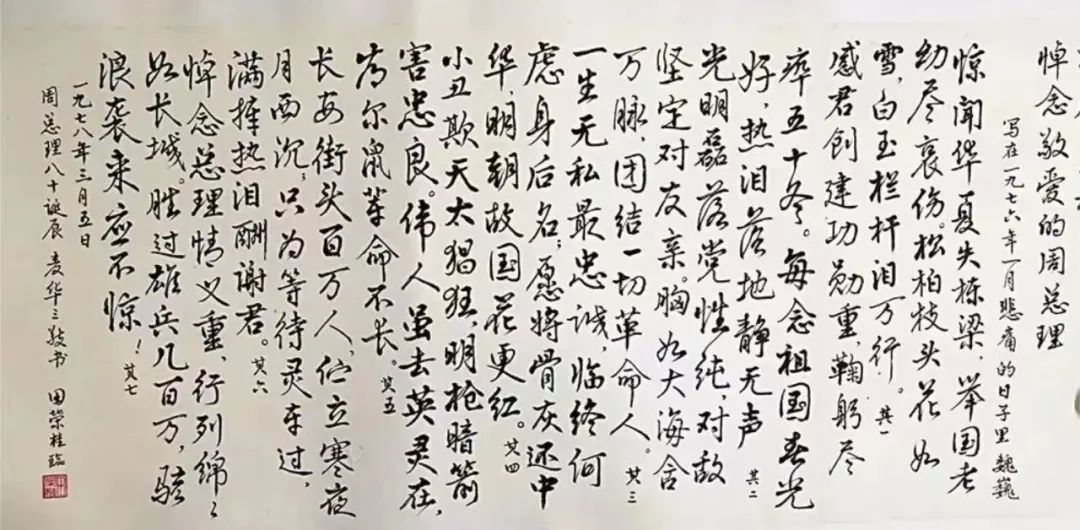 悼念敬爱的周总理
写在一九七六年一月悲痛的日子里 魏巍
惊闻华夏失栋梁,举国老
幼尽哀伤。松柏枝头花如
雪,白玉栏杆泪万行。其一
感君创建功勋重,鞠躬尽
瘁五十冬。每念祖国春光
好,热泪落地静无声 其二
光明磊落党性纯,对敌
坚定对友亲。胸如大海含
万脉,团结一切革命人。其三
一生无私最忠诚,临终何
虑身后名;愿将骨灰还中
华,明朝故国花更红。其四
小丑欺天太猖狂,明枪暗箭
害忠良。伟人虽去英灵在,
为尔鼠辈命不长。其五
长安街头百万人,伫立寒夜
月西沉;只为等待灵车过,
满捧热泪酬谢君。其六
悼念总理情义重,行列绵〻
如长城。胜过雄兵几百万,骇
浪袭来应不惊!其七
一九七八年三月五日
周总理八十诞辰 麦华三敬书 田榮桂临